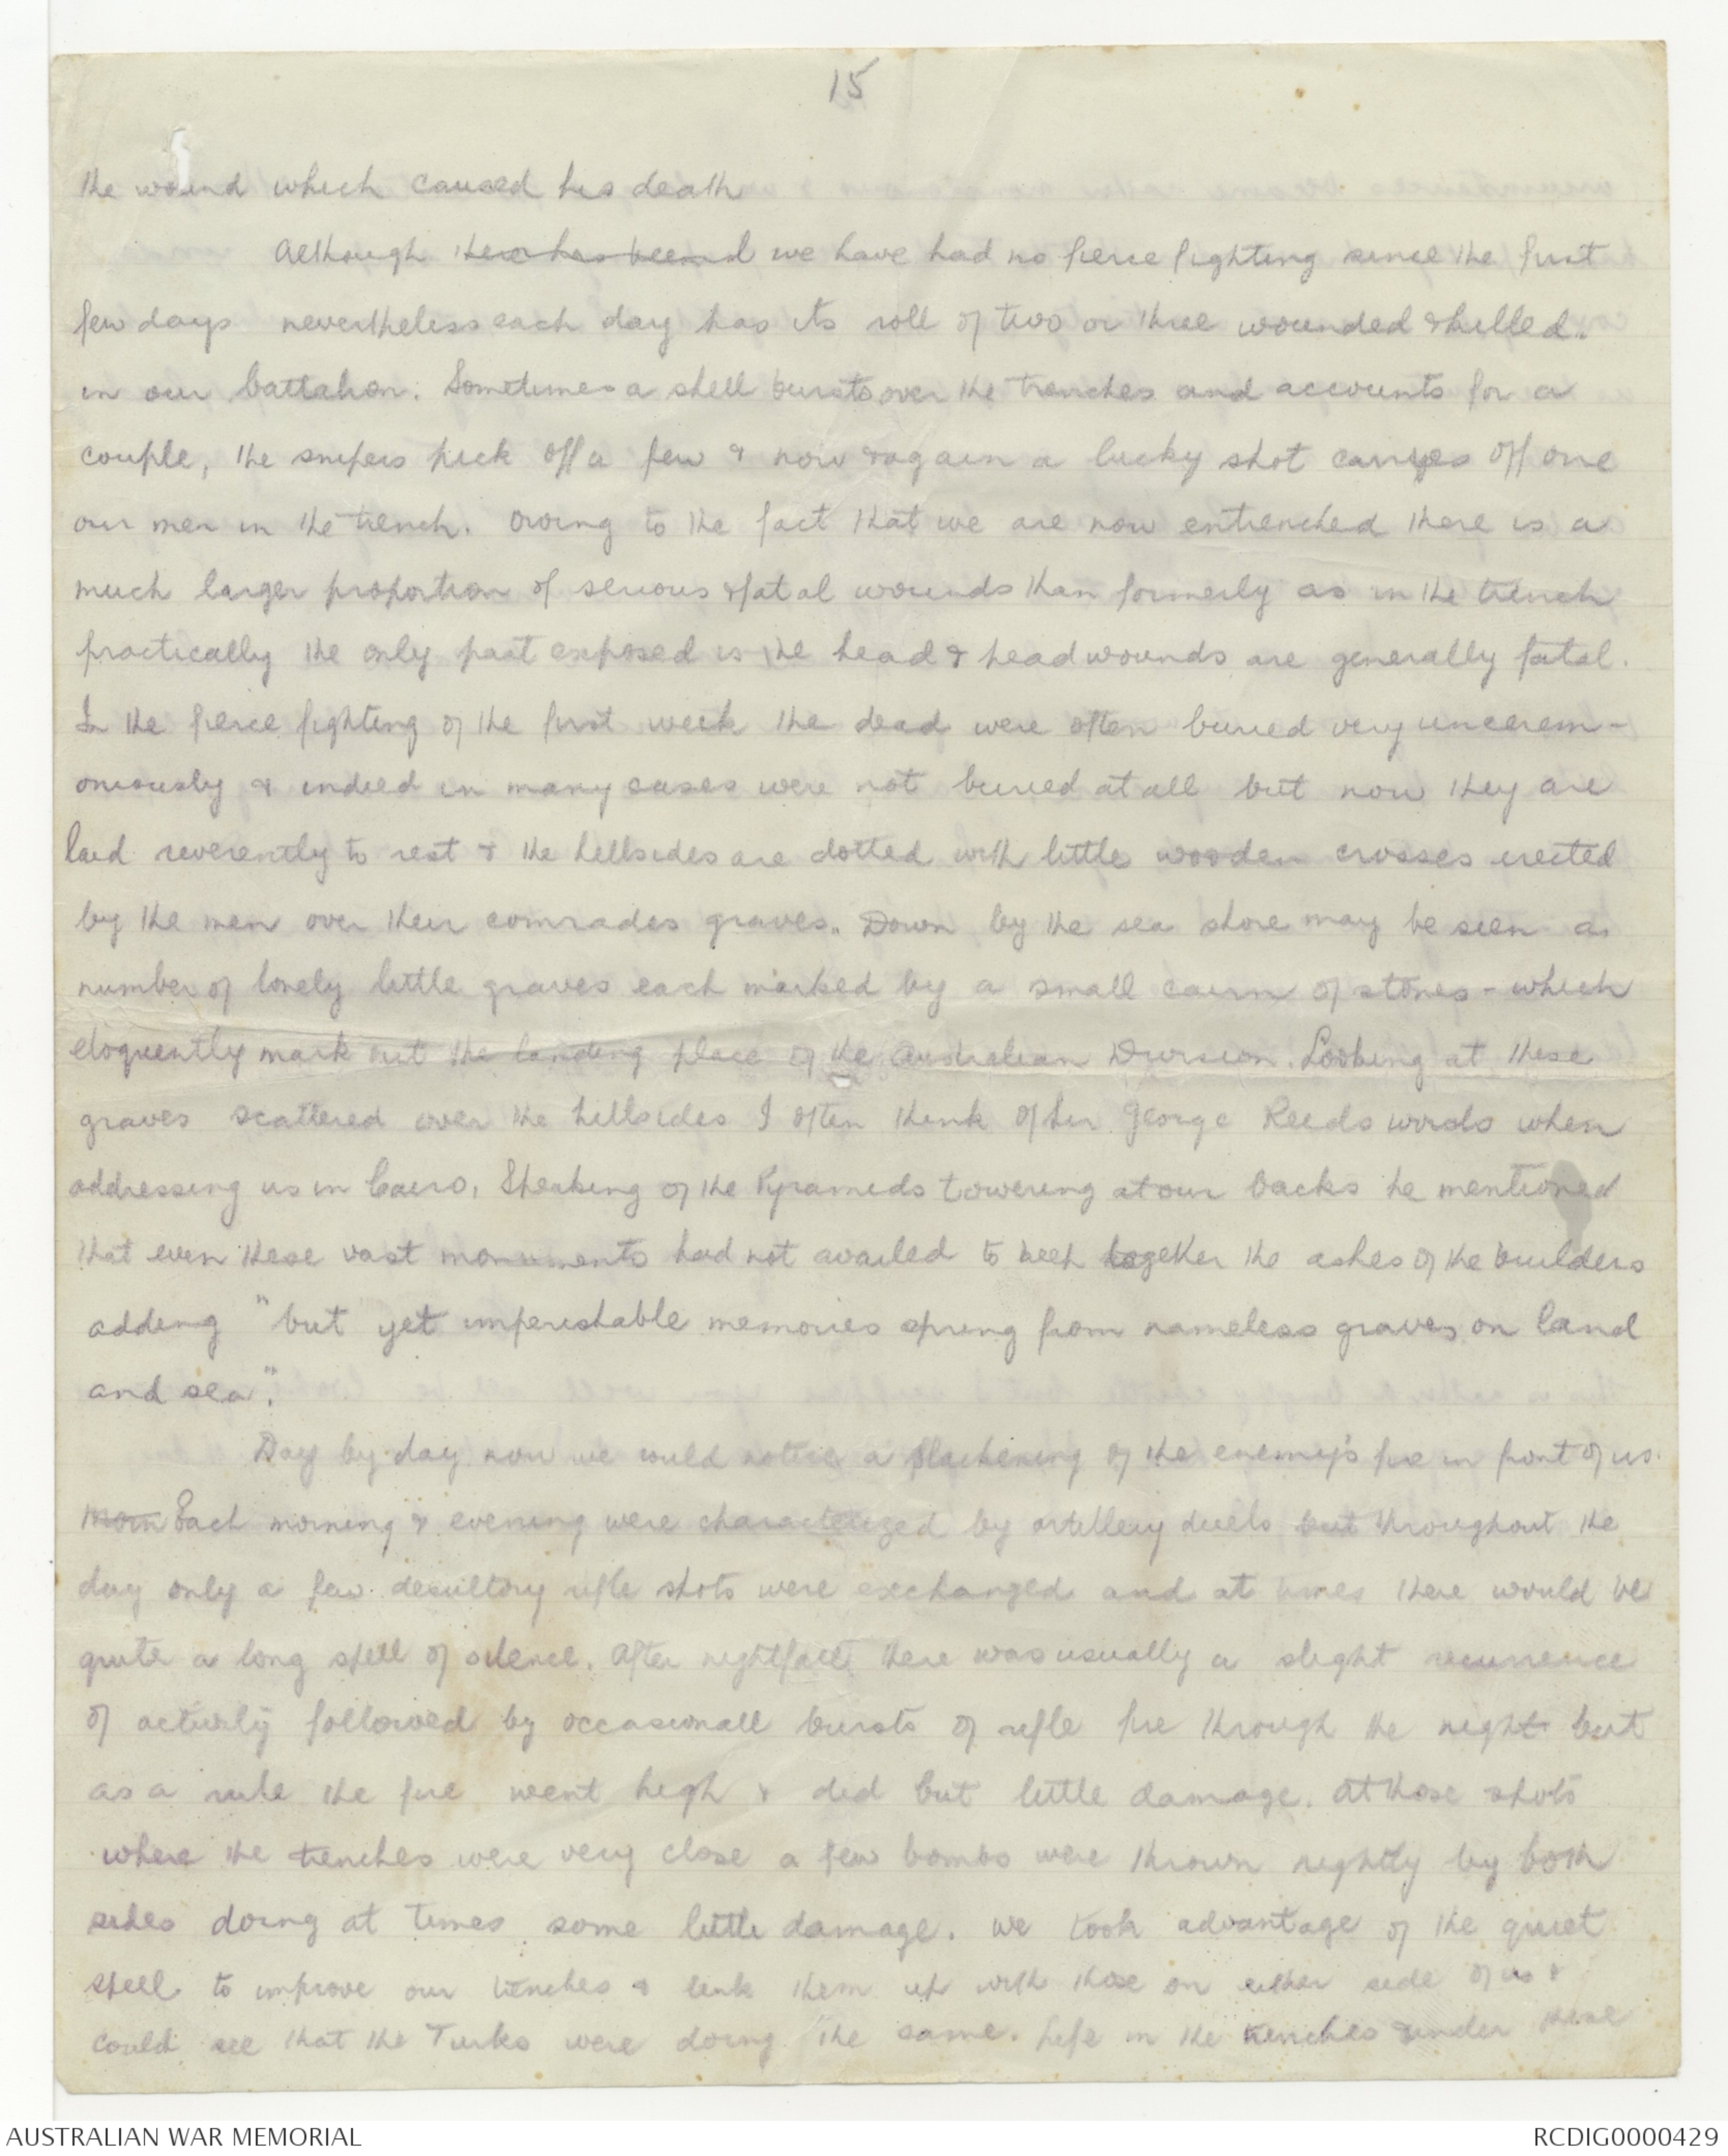 15
the wound which caused his death
Although there has been d we have had no fierce fighting since the first
few days nevertheless each day has its roll of two or three wounded & killed.
in our battalion. Sometimes a shell bursts over the trenches and accounts for a
couple, the snipers pick off a few & now & again a lucky shot carries off one
our men in the trench. Owing to the fact that we are now entrenched there is a
much larger proportion of serious & fatal wounds than formerly as in the trench
practically the only part exposed is the head & head wounds are generally fatal.
In the fierce fighting of the first week the dead were often buried very uncerem-
oniously & indeed in many cases were not buried at all but now they are
laid reverently to rest & the hillsides are dotted with little wooden crosses erected
by the men over their comrades graves. Down by the sea shore may be seen a
number of lonely little graves each marked by a small cairn of stones - which
eloquently mark out the landing place of the Australian Division. Looking at these
graves scattered over the hillsides I often think of Sir George Reids words when
addressing us in Cairo. Speaking of the Pyramids towering at our backs he mentioned
that even these vast monuments had not availed to keep together the ashes of the builders
adding "but yet imperishable memories spring from nameless graves on land
and sea".
Day by day now we could notice a slackening of the enemy's fire in front of us.
Morn Each morning & evening were characterized by artillery duels but throughout the
day only a few desultory rifle shots were exchanged and at times there would be
quite a long spell of silence. After nightfall there was usually a slight recurrence
of activity followed by occasionall bursts of rifle fire through the night but
as a rule the fire went high & did but little damage. At those spots
where the trenches were very close a few bombs were thrown nightly by both
sides doing at times some little damage. We took advantage of the quiet
spell to improve our trenches & link them up with those on either side of us &
could see that the Turks were doing the same. Life in the trenches under these
AUSTRALIAN WAR MEMORIAL
RCDIG0000429